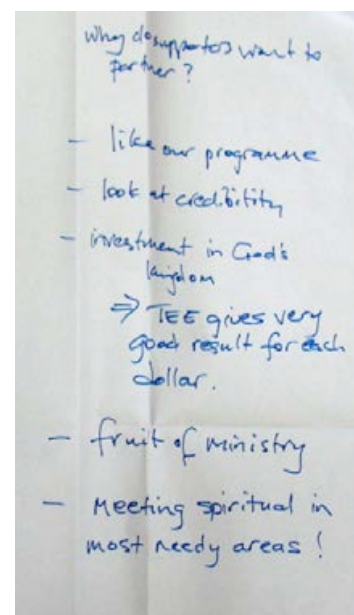 why do supporters want to
partner?
- like our programme
- look at credibility
- investment in God's
kingdom
⇒ TEE gives very
good result for each
dollar.
- fruit of ministry
- Meeting spiritual in
most needy areas!